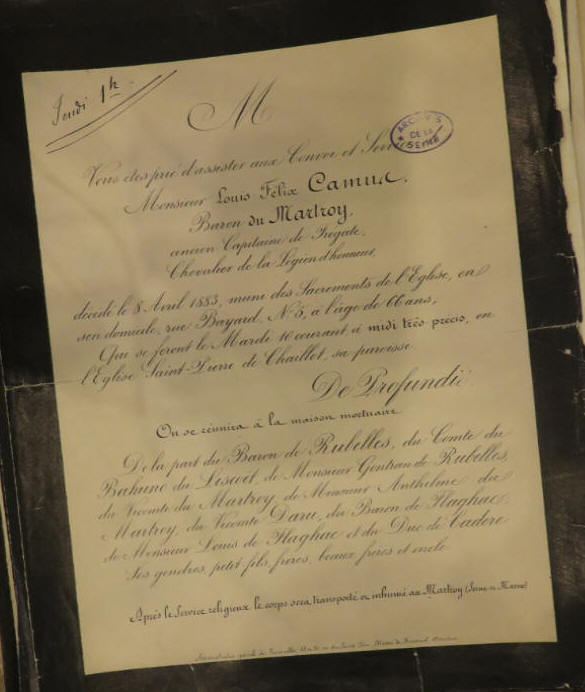 Jeudi 1h
M
ARCHIVES
DE LA
SEINE
Vous êtes prié d'assister aux Convoi et
Monsieur Louis Félix Camus,
Baron du Martroy,
ancien Capitaine de Frégate,
Chevalier de la Légion d'honneur,
décédé le 8 Avril 1883, muni des Sacrements de l'Eglise, en
son domicile, rue Bayard, N.° 5, à l'âge de 66 ans,
Qui se feront le Mardi 10 courant à midi très précis, en
l'Eglise Saint-Pierre de Chaillot, sa paroisse.
De Profundis.
On se réunira à la maison mortuaire
De la part du Baron de Rubelles, du Comte du
Bahuno du Liscoet, de Monsieur Gontran de Rubelles,
du Vicomte du Martroy, de Monsieur Anthelme du
Martroy, du Vicomte Daru, du Baron de Flaghac,
de Monsieur Louis de Flaghac et du Duc de Cadore
Ses gendres, petit fils, frères, beaux frères et oncle.
Après le Service religieux, le corps sera transporté et inhumé au Martroy (Seine et Marne)